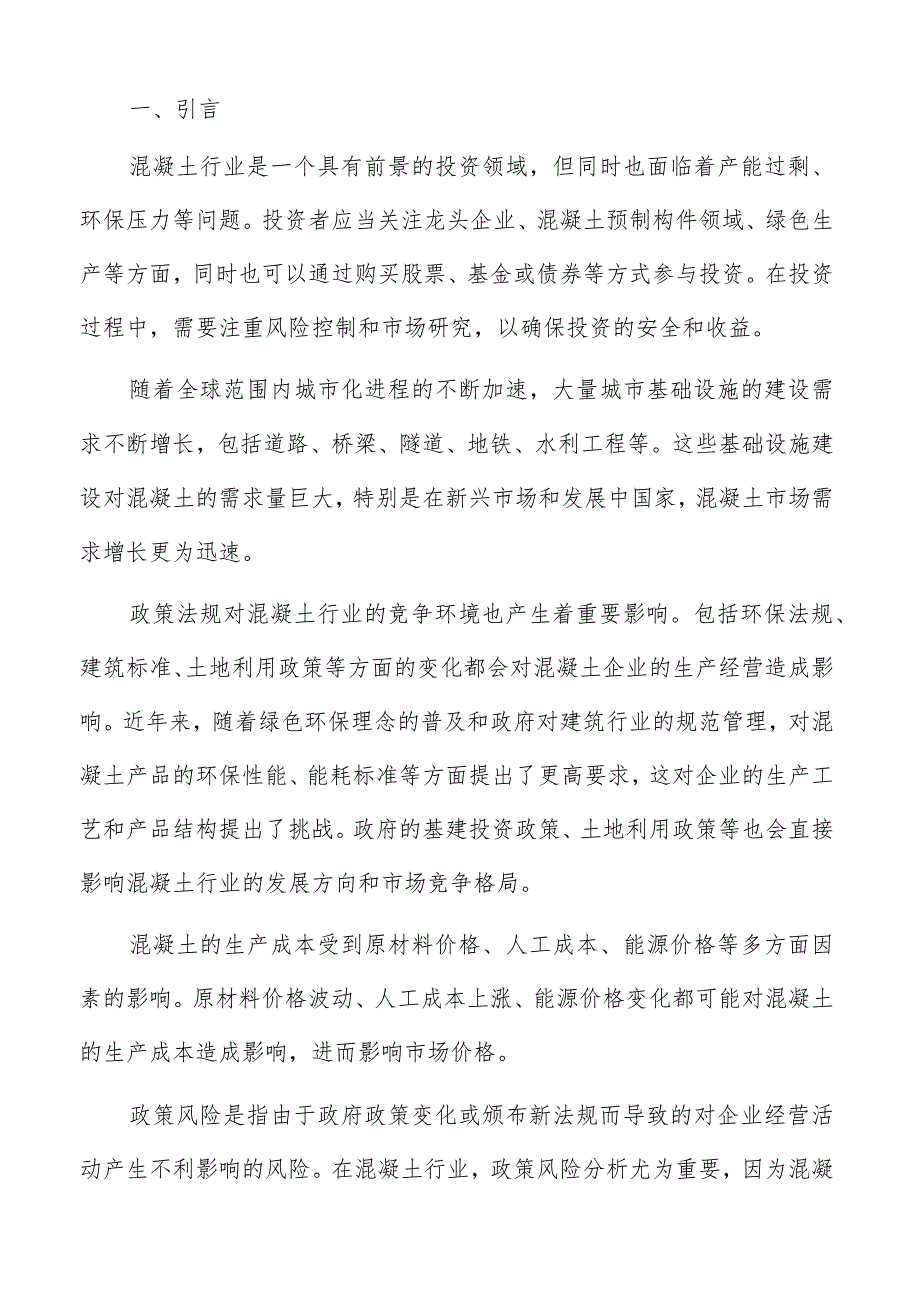 一、引言
混凝土行业是一个具有前景的投资领域，但同时也面临着产能过剩、
环保压力等问题。投资者应当关注龙头企业、混凝土预制构件领域、绿色生
产等方面，同时也可以通过购买股票、基金或债券等方式参与投资。在投资
过程中，需要注重风险控制和市场研究，以确保投资的安全和收益。
随着全球范围内城市化进程的不断加速，大量城市基础设施的建设需
求不断增长，包括道路、桥梁、隧道、地铁、水利工程等。这些基础设施建
设对混凝土的需求量巨大，特别是在新兴市场和发展中国家，混凝土市场需
求增长更为迅速。
政策法规对混凝土行业的竞争环境也产生着重要影响。包括环保法规、
建筑标准、土地利用政策等方面的变化都会对混凝土企业的生产经营造成影
响。近年来，随着绿色环保理念的普及和政府对建筑行业的规范管理，对混
凝土产品的环保性能、能耗标准等方面提出了更高要求，这对企业的生产工
艺和产品结构提出了挑战。政府的基建投资政策、土地利用政策等也会直接
影响混凝土行业的发展方向和市场竞争格局。
混凝土的生产成本受到原材料价格、人工成本、能源价格等多方面因
素的影响。原材料价格波动、人工成本上涨、能源价格变化都可能对混凝土
的生产成本造成影响，进而影响市场价格。
政策风险是指由于政府政策变化或颁布新法规而导致的对企业经营活
动产生不利影响的风险。在混凝土行业，政策风险分析尤为重要，因为混凝